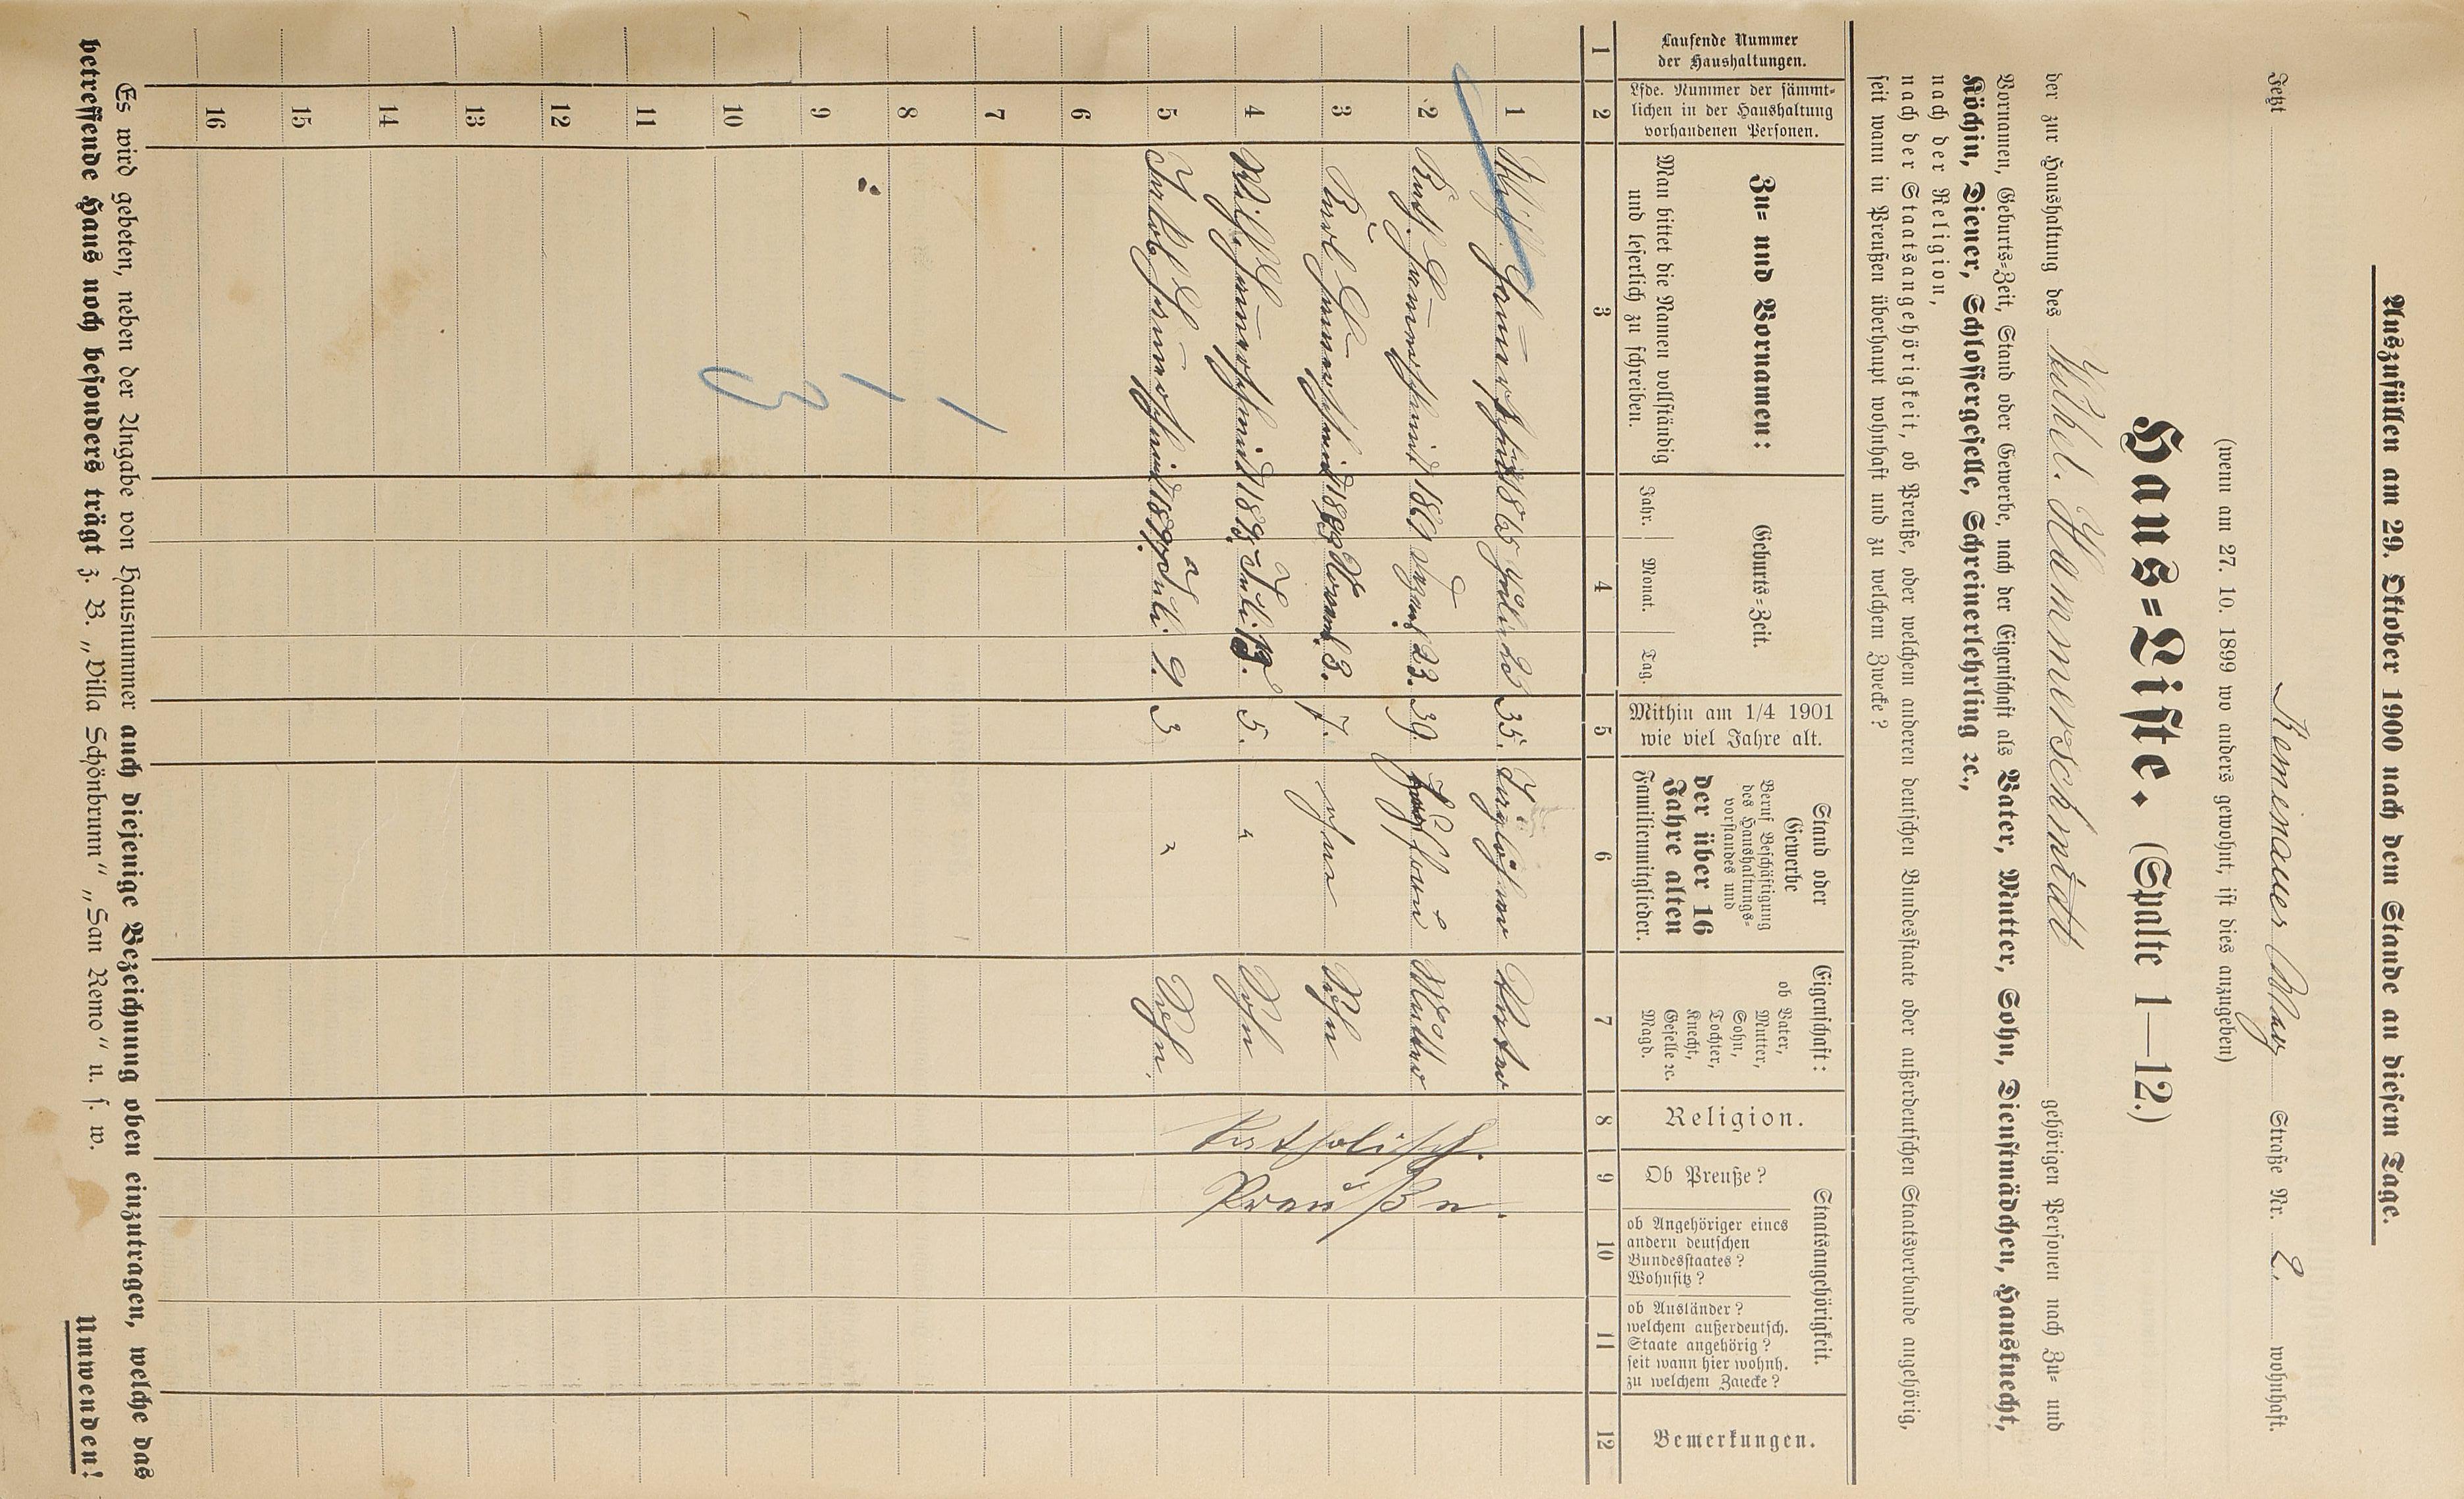 Auszufüllen am 29. Oktober 1900 nach dem Stande an diesem Tage.
Jetzt Remenauer Weg Straße Nr. 2. wohnhaft.
(wenn am 27. 10. 1899 wo anders gewohnt, ist dies anzugeben)
Haus=Liste. (Spalte 1—12.)
der zur Haushaltung des Wilhel. Hammerschmidt gehörigen Personen nach Zu= und
Vornamen, Geburts=Zeit, Stand oder Gewerbe, nach der Eigenschaft als Vater, Mutter, Sohn, Dienstmädchen, Hausknecht,
Köchin, Diener, Schlossergeselle, Schreinerlehrling ꝛc.,
nach der Religion,
nach der Staatsangehörigkeit, ob Preuße, oder welchem anderen deutschen Bundesstaate oder außerdeutschen Staatsverbande angehörig,
seit wann in Preußen überhaupt wohnhaft und zu welchem Zwecke?
Laufende Nummer
der Haushaltungen.
Lfde. Nummer der sämmt=
lichen in der Haushaltung
vorhandenen Personen.
Zu= und Vornamen:
Man bittet die Namen vollständig
und leserlich zu schreiben.
Geburts=Zeit.
Jahr. Monat. Tag.
Mithin am 1/4 1901
wie viel Jahre alt.
Stand oder
Gewerbe
Beruf Beschäftigung
des Haushaltungs=
vorstandes und
der über 16
Jahre alten
Familienmitglieder.
Eigenschaft:
ob Vater,
Mutter,
Sohn,
Tochter,
Knecht,
Geselle ꝛc.
Magd.
Religion.
Staatsangehörigkeit.
Ob Preuße?
ob Angehöriger eines
andern deutschen
Bundesstaates?
Wohnsitz?
ob Ausländer?
welchem außerdeutsch.
Staate angehörig?
seit wann hier wohnh.
zu welchem Zwecke?
Bemerkungen.
1 2 3 4 5 6 7 8 9 10 11 12
1 Wilh. Hammerschmidt 1865 Juli 25 35. Taglöhner Vater
2 Kath. Hammerschmidt 1861 23. 39. Mutter
3 Karl Hammerschmidt 1893 Novem. 3. 7. ohne Sohn
4 Wilh. Hammerschmidt 1895 Juli 13. 5. " Sohn
5 Jakob Hammerschmidt 1897 Juli. 9. 3 " Sohn.
Katholisch.
Preuße.
6
7
8
9
10
11
12
13
14
15
16
Es wird gebeten, neben der Angabe von Hausnummer auch diejenige Bezeichnung oben einzutragen, welche das
betreffende Haus noch besonders trägt z. B. „Villa Schönbrunn“ „San Remo“ u. s. w.
Umwenden!